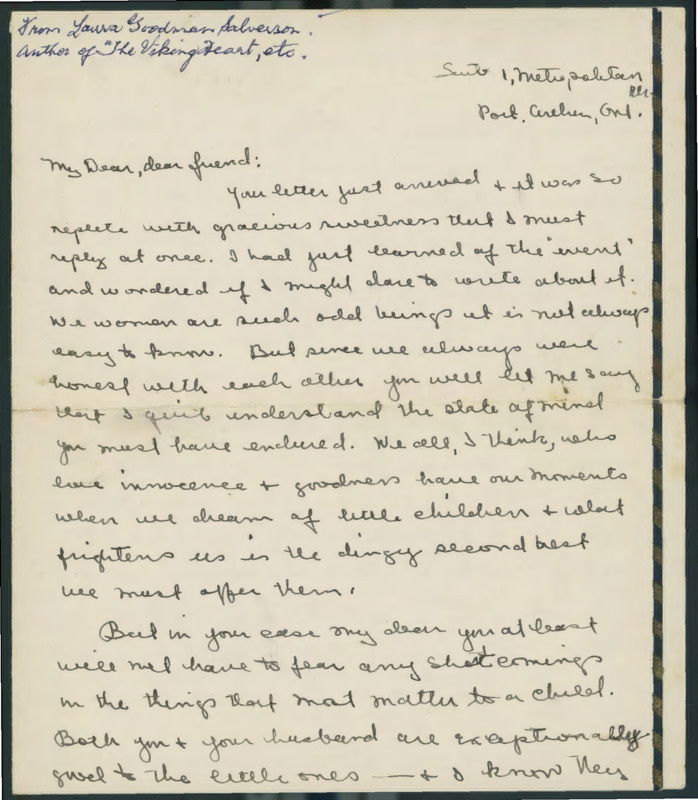 From Laura Goodman Salverson.
Author of "The Viking Heart, etc.
Suite 1, Metropolitan
Blk.
Port. Arthur, Ont.
My Dear, dear friend:
Your letter just arrived + it was so
replete with gracious sweetness that I must
reply at once. I had just learned of the "event"
and wondered if I might dare to write about it.
We women are such odd beings it is not always
easy to know. But since we always were
honest with each other you will let me say
that I quite understand the state of mind
you must have endured. We all, I think, who
love innocence + goodness have our moments
when we dream of little children + what
frightens us is the dingy second best
we must offer them.
But in your case my dear you at least
will not have to fear any shortcomings
in the things that most matter to a child.
Both you + your husband are exceptionally
good to the little ones — + I know they